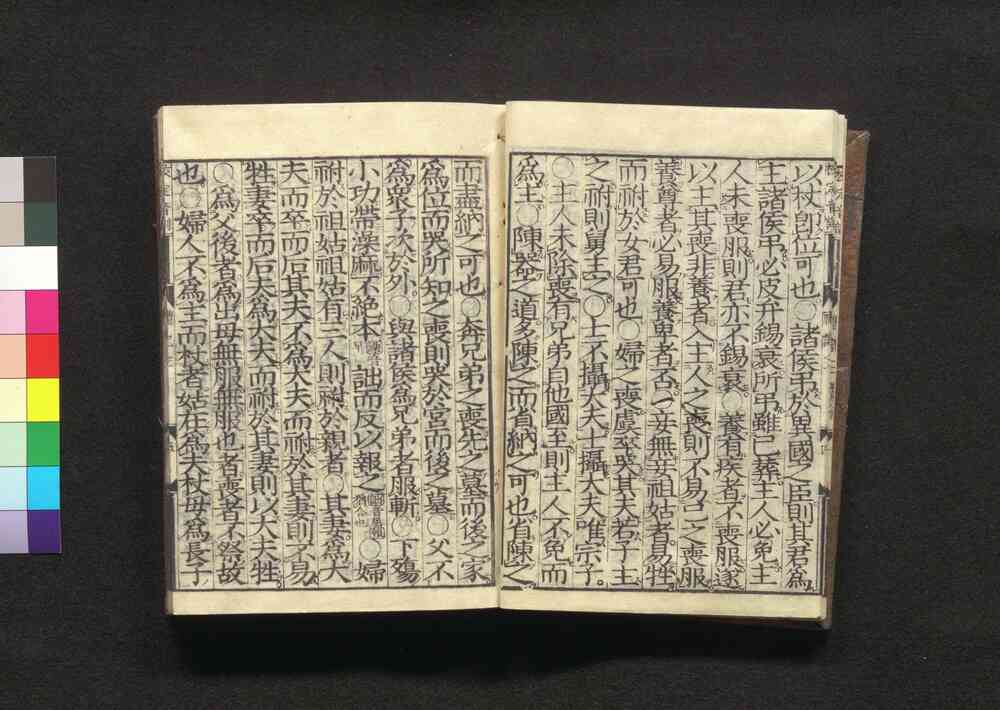 以杖卽位可也○諸侯弔於異國之臣則其君爲
主諸侯弔必皮弁錫衰所弔雖已葬主人必免主
人未喪服則君亦不錫衰○養有疾者不喪服遂
以主其喪非養者入主人之喪則不易己之喪服
養尊者必易服養卑者否○妾無妾祖姑者易牲
而祔於女君可也○婦之喪虞卒哭其夫若子主
之祔則舅主之○士不攝大夫士攝大夫唯宗子
○主人未除喪有兄弟自他國至則主人不免而
爲主○陳器之道多陳之而省納之可也省陳之
而盡納之可也○奔兄弟之喪先之墓而後之家
爲位而哭所知之喪則哭於宮而後之墓○父不
爲衆子次於外○與諸侯爲兄弟者服斬○下殤
小功帶澡麻不絕本詘而反以報之○婦
祔於祖姑祖姑有三人則祔於親者○其妻爲大
夫而卒而后其夫不爲大夫而祔於其妻則不易
牲妻卒而后夫爲大夫而祔於其妻則以大夫牲
○爲父後者爲出母無服無服也者喪者不祭故
也○婦人不爲主而杖者姑在爲夫杖母爲長子